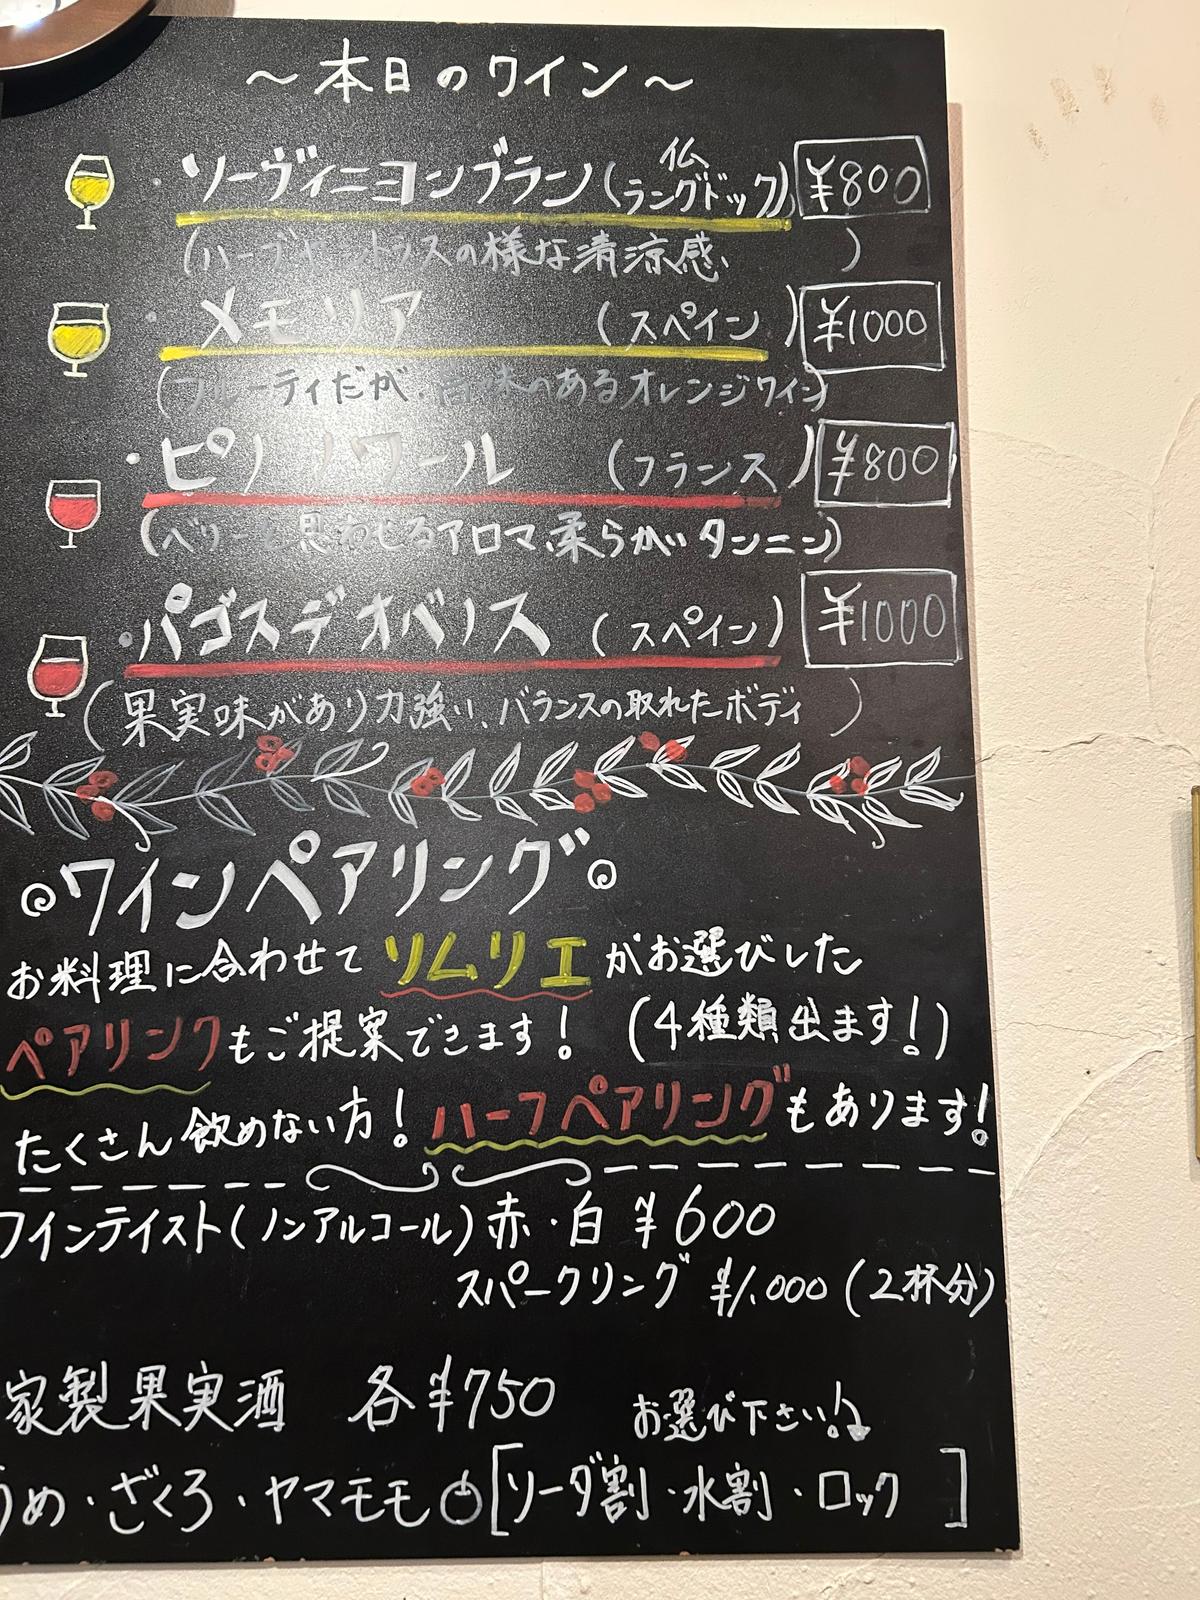 〜本日のワイン〜
ソーヴィニヨンブラン(仏 ラングドック) ¥800
(ハーブやシトラスの様な清涼感、 )
メモリア (スペイン) ¥1000
(フルーティだが、旨味のあるオレンジワイン)
ピノ・ノワール (フランス) ¥800
(ベリーと思わせるアロマ、柔らかいタンニン)
パゴスデオバリス (スペイン) ¥1000
(果実味があり力強い、バランスの取れたボディ )
ワインペアリング
お料理に合わせてソムリエがお選びした
ペアリングもご提案できます! (4種類出ます!)
たくさん飲めない方!ハーフペアリングもあります!
ワインテイスト(ノンアルコール)赤・白 ¥600
スパークリング ¥1,000 (2杯分)
家製果実酒 各¥750 お選び下さい!
うめ・ざくろ・ヤマモモ [ソーダ割・水割・ロック ]